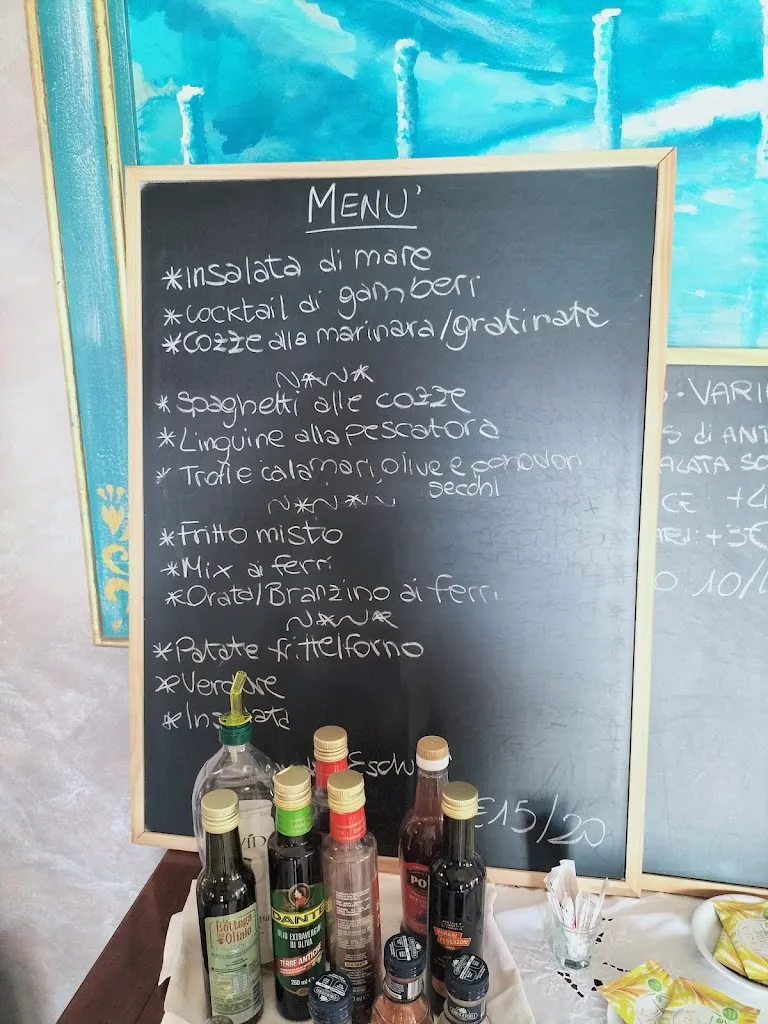 MENU'
*Insalata di mare
*cocktail di gamberi
*cozze alla marinara/gratinate
*Spaghetti alle cozze
*Linguine alla pescatora
*Trofie calamari, olive e pomodori
secchi
*Fritto misto
*Mix ai ferri
*Orata/Branzino ai ferri
*Patate fritte/forno
*Verdure
*Insalata
€15/20
. VARI
di ANT
ALATA SO
CE +4
ARI: +3€
O 10/
la Bottega
dell'Oliaio
DANTE
OLIO EXTRAVERGINE
DI OLIVA
TERRE ANTICHE
250 ml e
PO